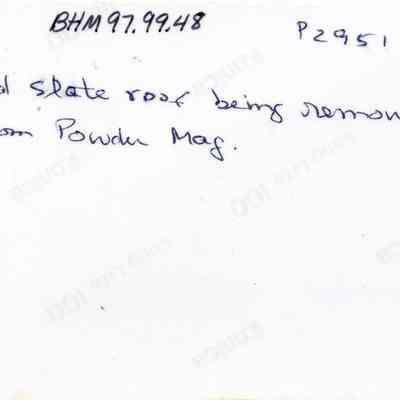 BHM97.99.48 P2951
d slate roof being remov
om Powder Mag.